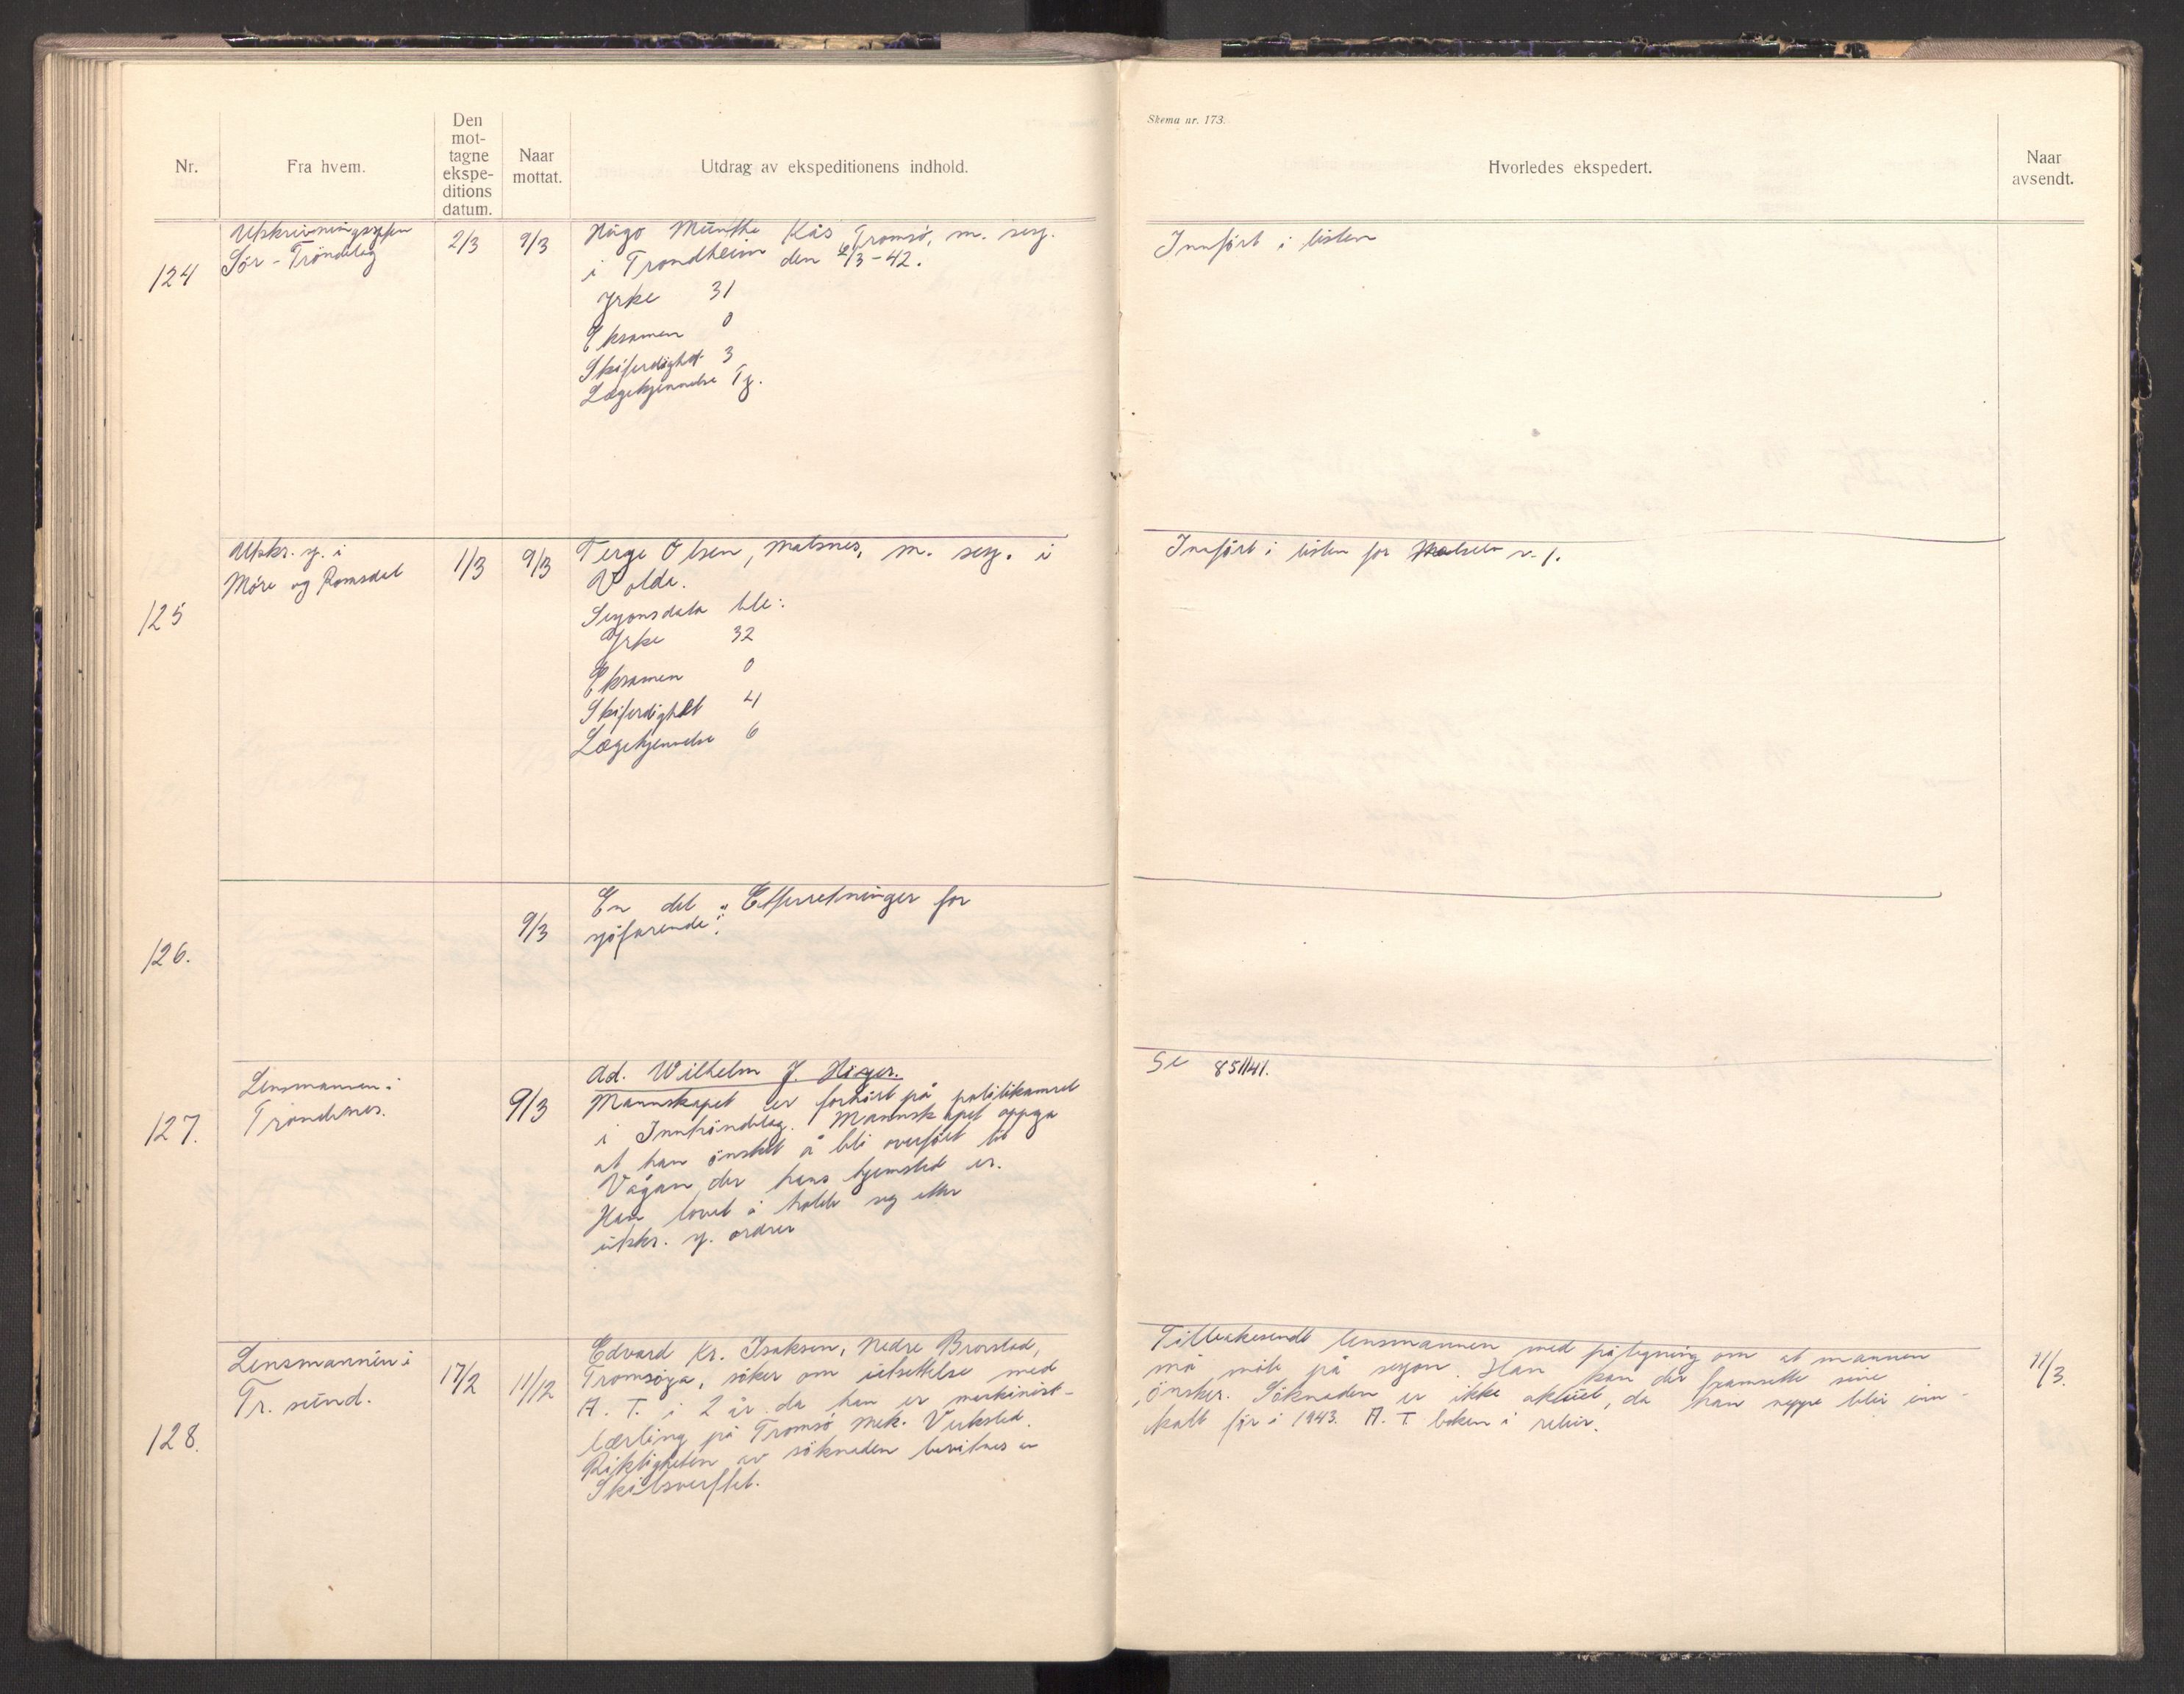 Nr.
Fra hvem.
Den
mot-
tagne
ekspe-
ditions
datum.
Naar
mottat.
Utdrag av ekspeditionens indhold.
124
Utskrivningssjefen
Sör-Tröndelag
2/3
9/3
Hugo Munthe Kås Tromsö, m. sesj.
i Trondheim den 6/3-42.
Yrke 31
Eksamen 0
Skiferdighet 3
Lægekjennelse Tj.
125
Utskr. sj. i
Möre og Romsdal
1/3
9/3
Terje Olsen, Malsnes, m. sesj. i
Volda.
Sesjonsdata ble:
Yrke 32
Eksamen 0
Skiferdighet 4
Lægekjennelse 6
126.
9/3
En del "Efterretninger for
sjöfarende".
127.
Lensmannen i
Trondenes.
9/3
Ad. Wilhelm J.
Mannskapet er forhört på politikamret
i Inntröndelag. Mannskapet oppga
at han önsket å bli overfört til
Vågan, der hans hjemsted er.
Han lovet å holde seg etter
utskr. sj. ordrer
128.
Lensmannen i
Tr. sund.
17/2
11/12
Edvard Kr. Isaksen, Nedre
Tromsöya, söker om utsettelse med
A. T. i 2 år da han er maskinist-
lærling på Tromsö Mek. Verksted.
Riktigheten av söknaden bevitnes av
Skibsverftet.
Skema nr. 173.
Hvorledes ekspedert.
Naar
avsendt.
Innfört i listen
Innfört i listen for Malselv v. 1.
Se 851/41.
Tilbakesendt lensmannen med påtegning om at mannen
må möte på sesjon. Han kan der framsette sine
önsker. Söknaden er ikke aktuel, da han neppe blir inn-
kalt för i 1943. A. T. boken i retur.
11/3.